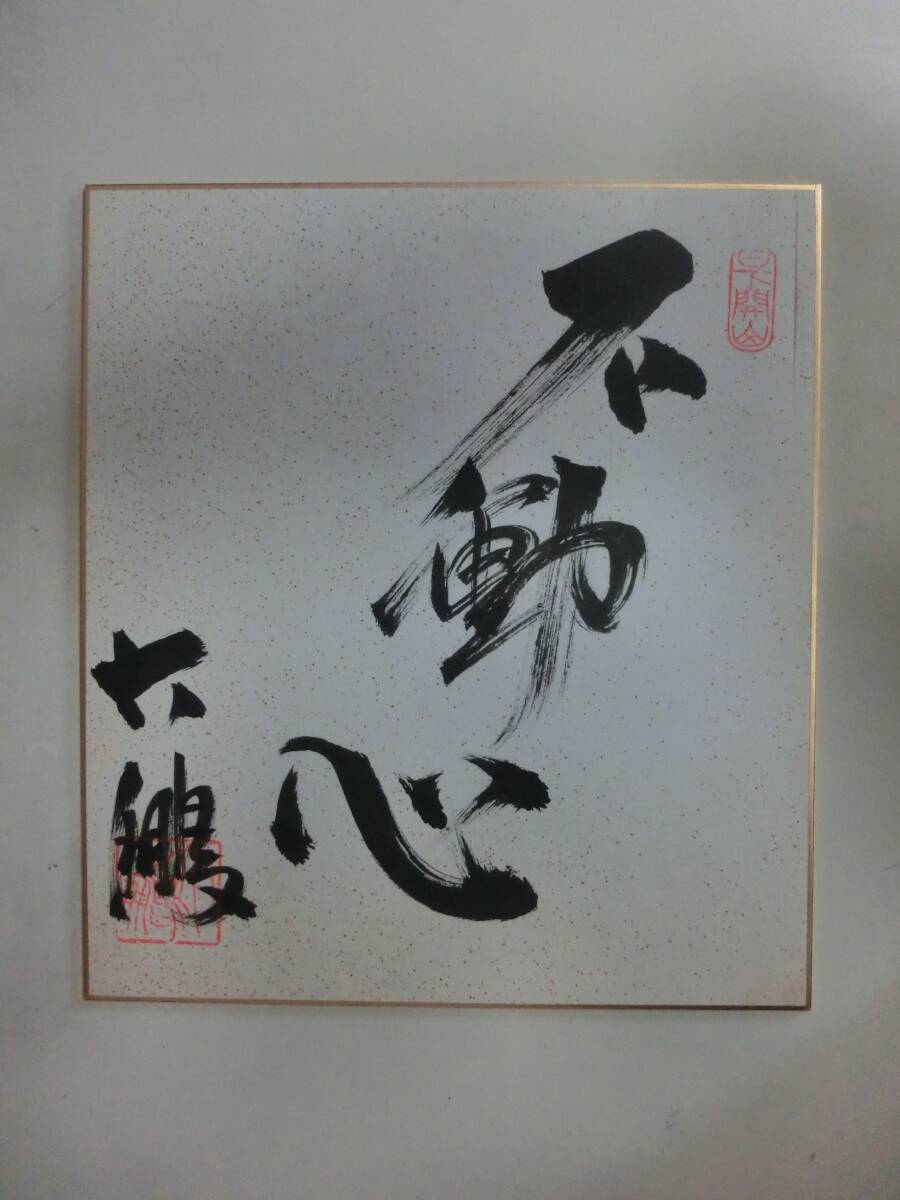 不動心
大鵬